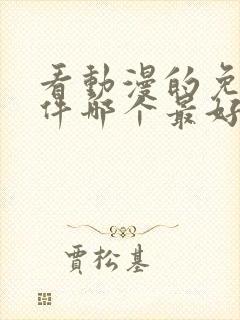 看動漫的免
件哪个最好
賈松基